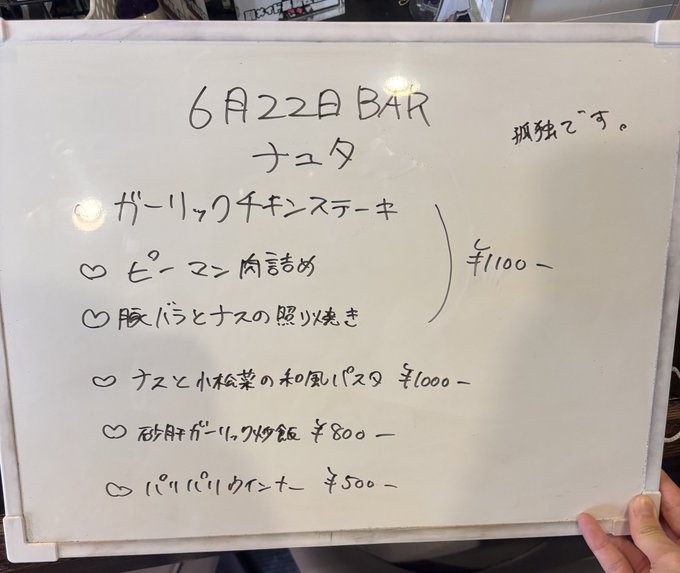 6月22日 BAR
ナユタ
孤独です。
ガーリックチキンステーキ
♡ ピーマン肉詰め
♡ 豚バラとナスの照り焼き
¥1100-
♡ ナスと小松菜の和風パスタ ¥1000-
♡ 砂肝ガーリック炒飯 ¥800-
♡ パリパリウインナー ¥500-